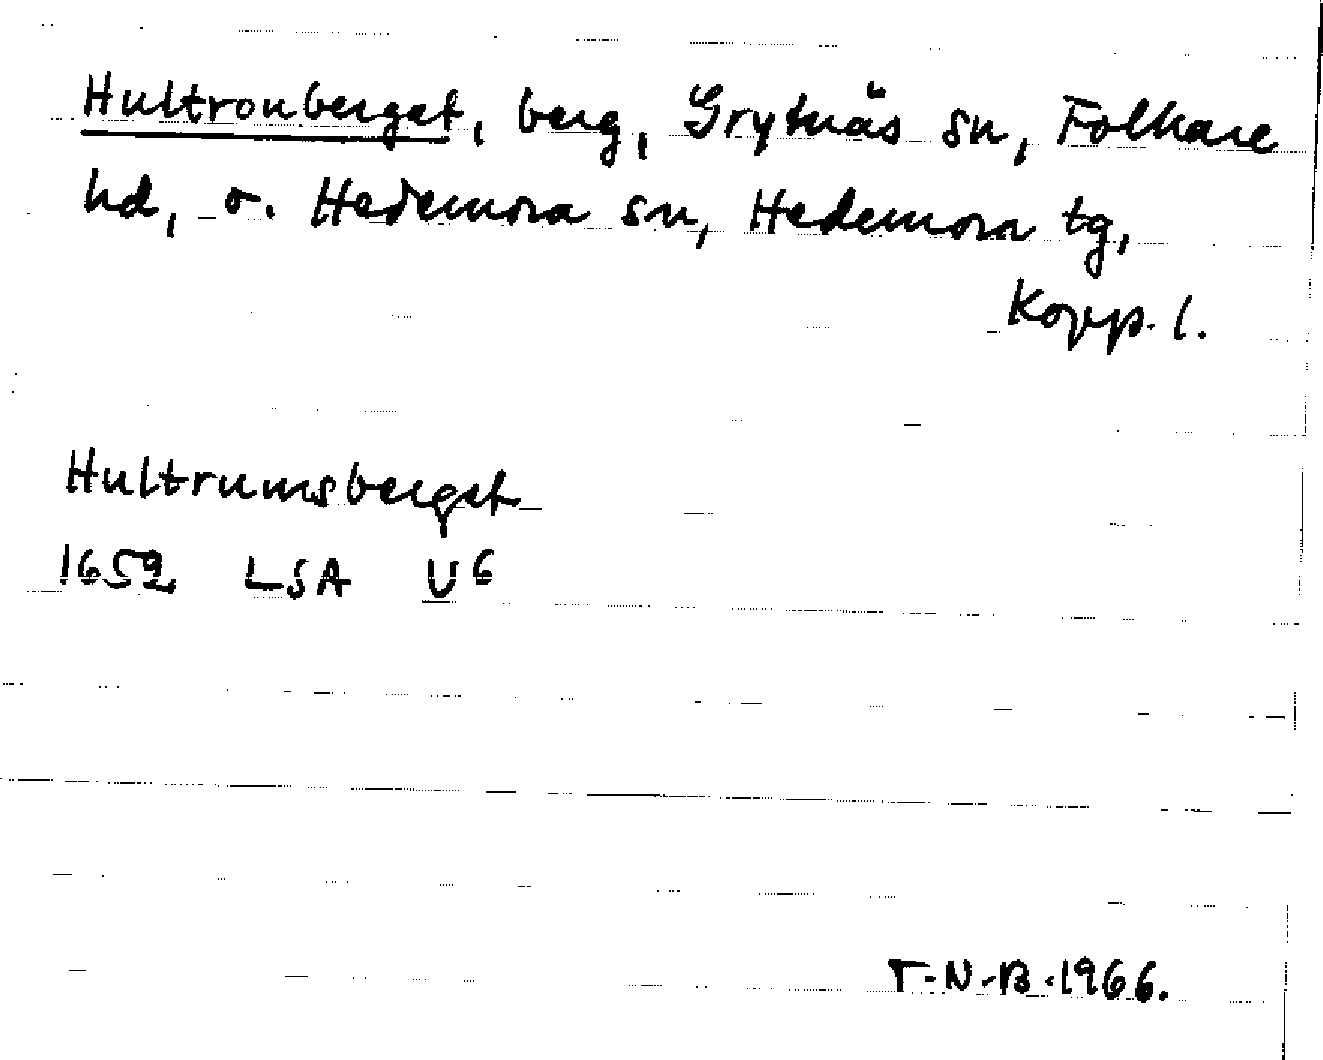 Hultronberget, berg, Grytnäs sn, Folkare
hd, o. Hedemora sn, Hedemora tg,
Kopp. l.
Hultrumsberget
1652 LSA U6
T.N.B.1966.